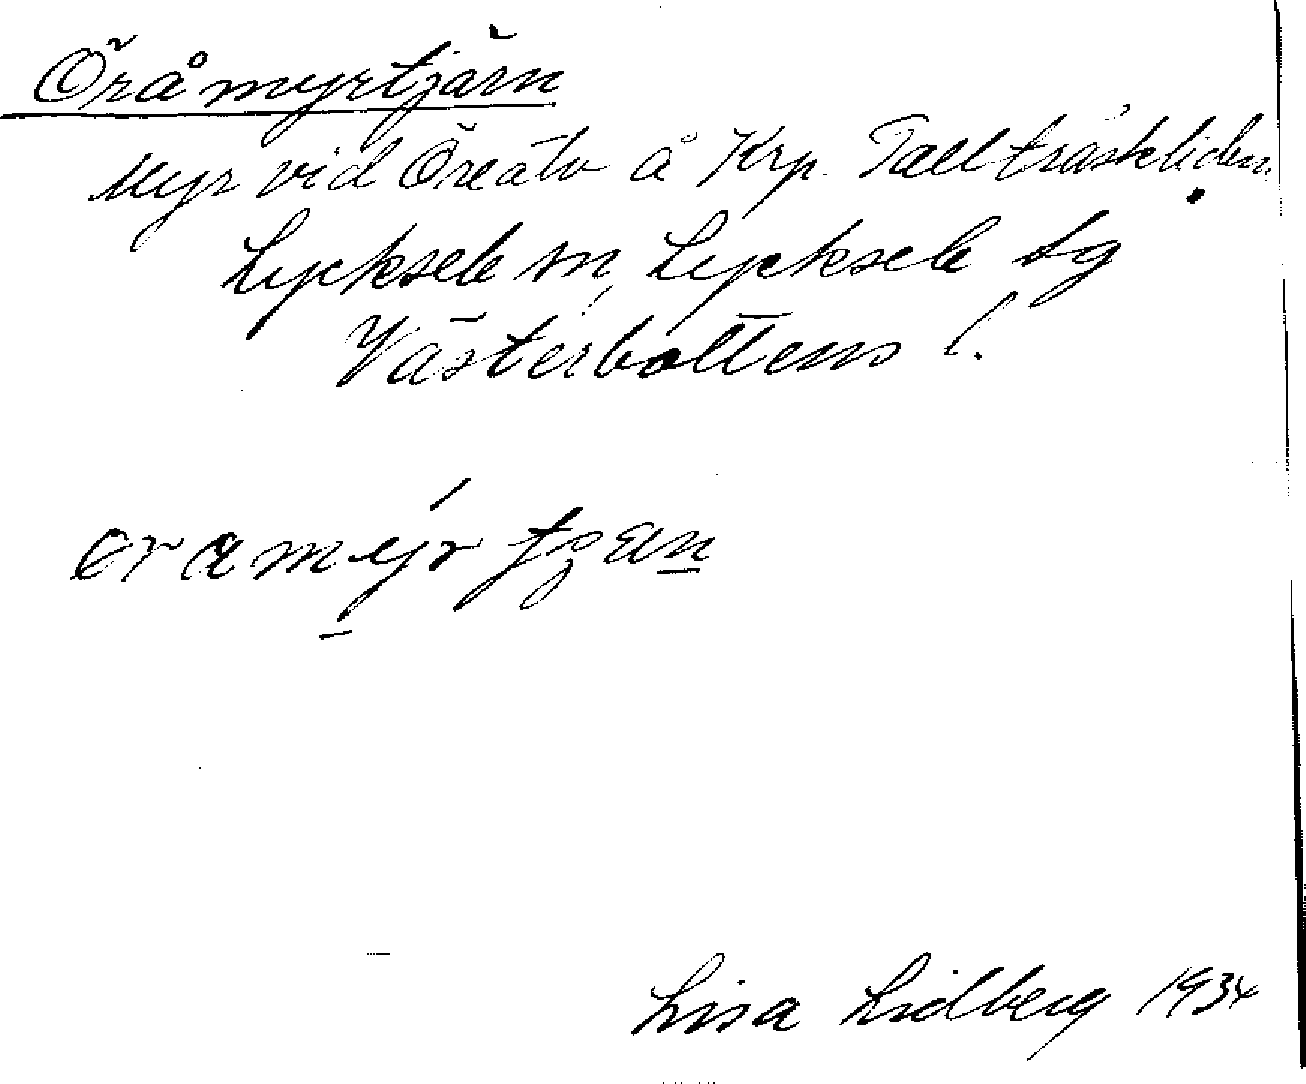 Öråmyrtjärn
Myr vid Öreälv å Krp. Tallträskliden.
Lycksele sn, Lycksele tg
Västerbottens l.
Lisa Lidberg 1934